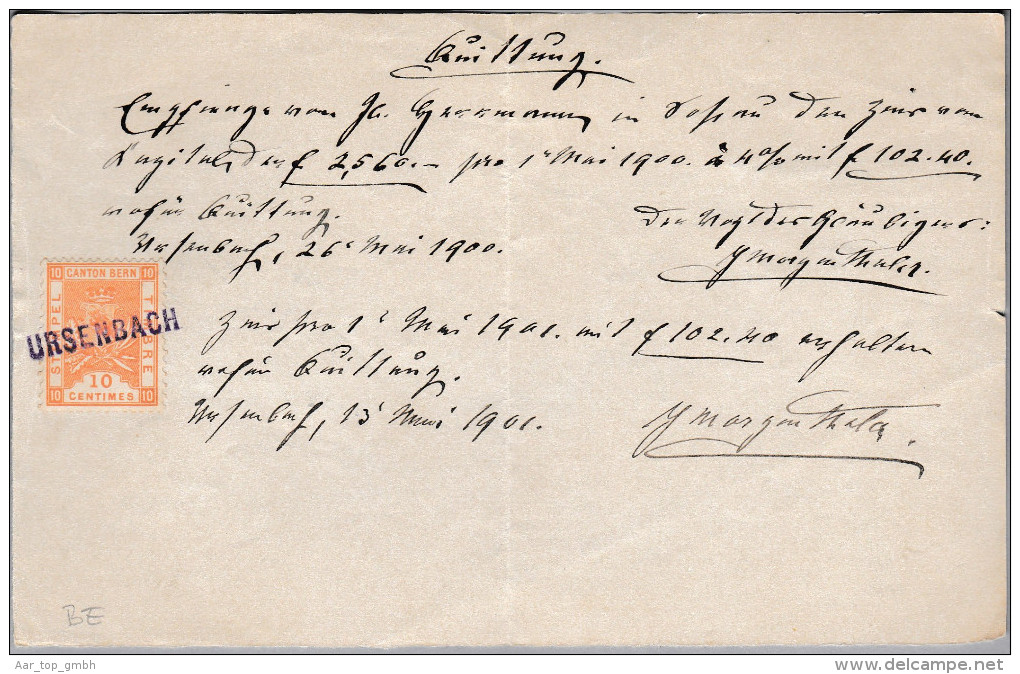 Quittung.
Empfienge von Jb. Herrmann in Roßau den Zins vom
Kapital der f 2,560.– pro 1t Mai 1900. à 4% mit f 102.40.
wofür Quittung.
Ursenbach, 26t Mai 1900.
Der Vogt des Gläubigers:
J Morgenthaler.
CANTON BERN
STEMPEL
TIMBRE
10
10
10
10
10
CENTIMES
URSENBACH
Zins pro 1t Mai 1901. mit f 102.40 erhalten
wofür Quittung.
Ursenbach, 13t Mai 1901.
J Morgenthaler.
BE
Aar_top_gmbh
www.delcampe.net